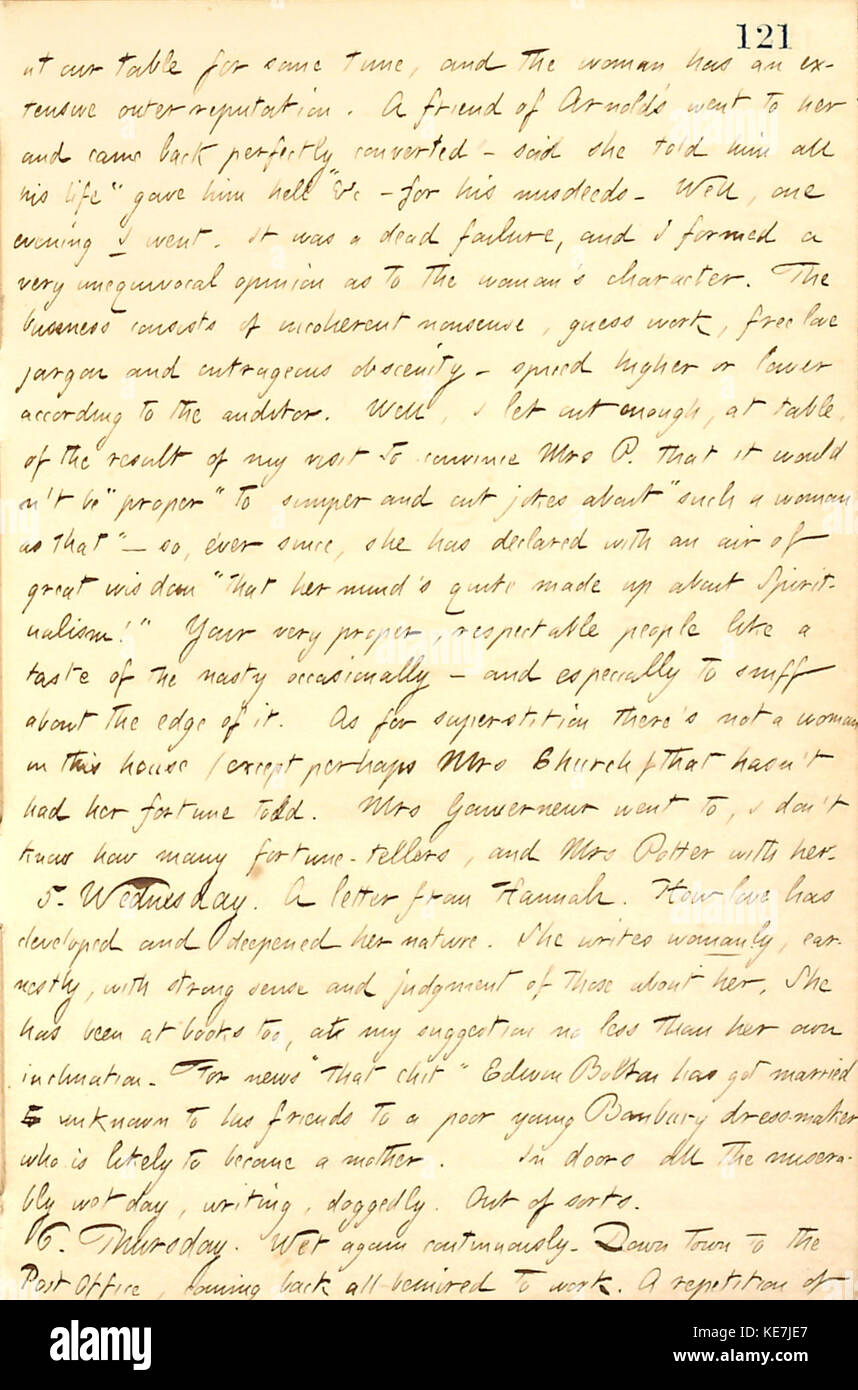 121
at our table for some time, and the woman has an ex-
tensive outer reputation. A friend of Arnold's went to her
and came back perfectly converted - said she told him all
his life "gave him hell" &c - for his misdeeds - Well, one
evening I went. It was a dead failure, and I formed a
very unequivocal opinion as to the woman's character. The
business consists of incoherent nonsense, guess work, free love
jargon and outrageous obscenity - spiced higher or lower
according to the auditor. Well, I let out enough, at table,
of the result of my visit to convince Mrs P. that it would
n't be "proper" to simper and cut jokes about "such a woman
as that" - so, ever since, she has declared with an air of
great wisdom "that her mind's quite made up about Spirit-
ualism!" Your very proper, respectable people like a
taste of the nasty occasionally - and especially to sniff
about the edge of it. As for superstition there's not a woman
in this house (except perhaps Mrs Church) that hasn't
had her fortune told. Mrs Gouverneur went to, I don't
know how many fortune-tellers, and Mrs Potter with her.
5. Wednesday. A letter from Hannah. How love has
developed and deepened her nature. She writes womanly, ear-
nestly, with strong sense and judgment of those about her. She
has been at books too, at my suggestion no less than her own
inclination. For news "that chit" Edwin Bolton has got married
unknown to his friends to a poor young Banbury dress-maker
who is likely to become a mother. In doors all the misera-
bly wet day, writing, doggedly. Out of sorts.
6. Thursday. Wet again continuously. Down town to the
Post Office, coming back all bemired to work. A repetition of
alamy
Image ID: KE7JE7
www.alamy.com